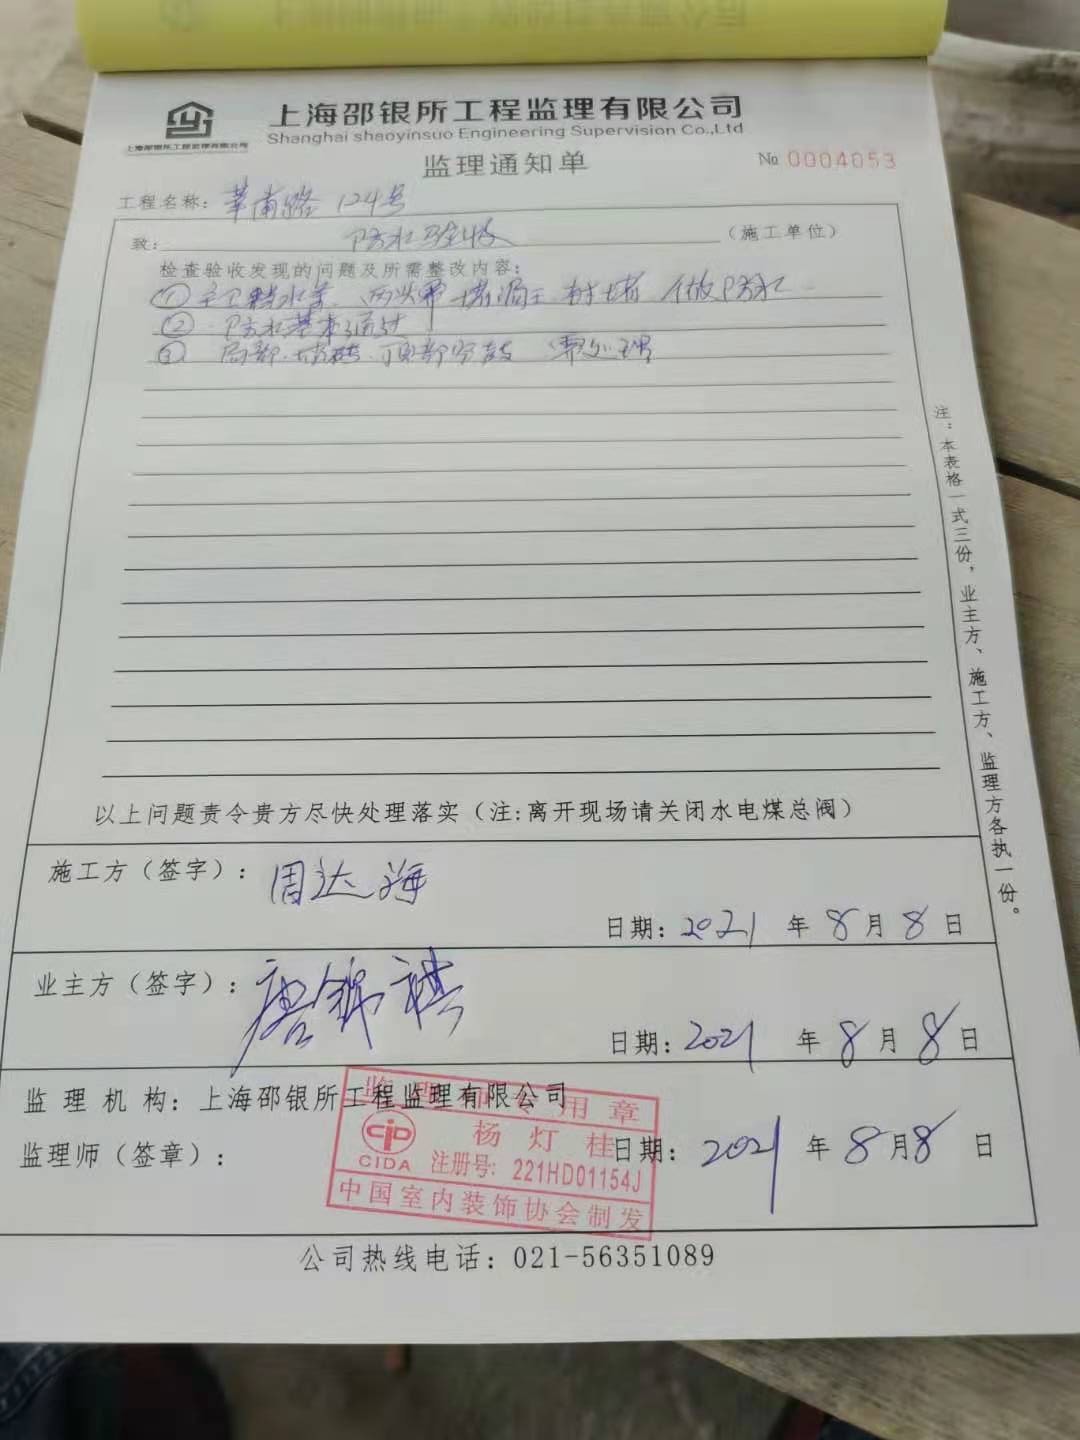 上海邵银所工程监理有限公司
Shanghai shaoyinsuo Engineering Supervision Co.,Ltd
上海邵银所工程监理有限公司
监理通知单
№ 0004053
工程名称: 莘南路 124号
致: 防水验收 (施工单位)
检查验收发现的问题及所需整改内容:
① 两次 需 堵漏王 封堵 做防水
② 防水基本通过
③ 局部 墙砖 顶部空鼓 需处理
以上问题责令贵方尽快处理落实(注:离开现场请关闭水电煤总阀)
施工方(签字): 周达海
日期: 2021 年 8 月 8 日
业主方(签字): 唐锦祺
日期: 2021 年 8 月 8 日
监理机构: 上海邵银所工程监理有限公司
监理师(签章):
日期: 2021 年 8 月 8 日
监理师专用章
杨灯桂
CIDA 注册号: 221HD01154J
中国室内装饰协会制发
公司热线电话: 021-56351089
注:本表格一式三份,业主方、施工方、监理方各执一份。